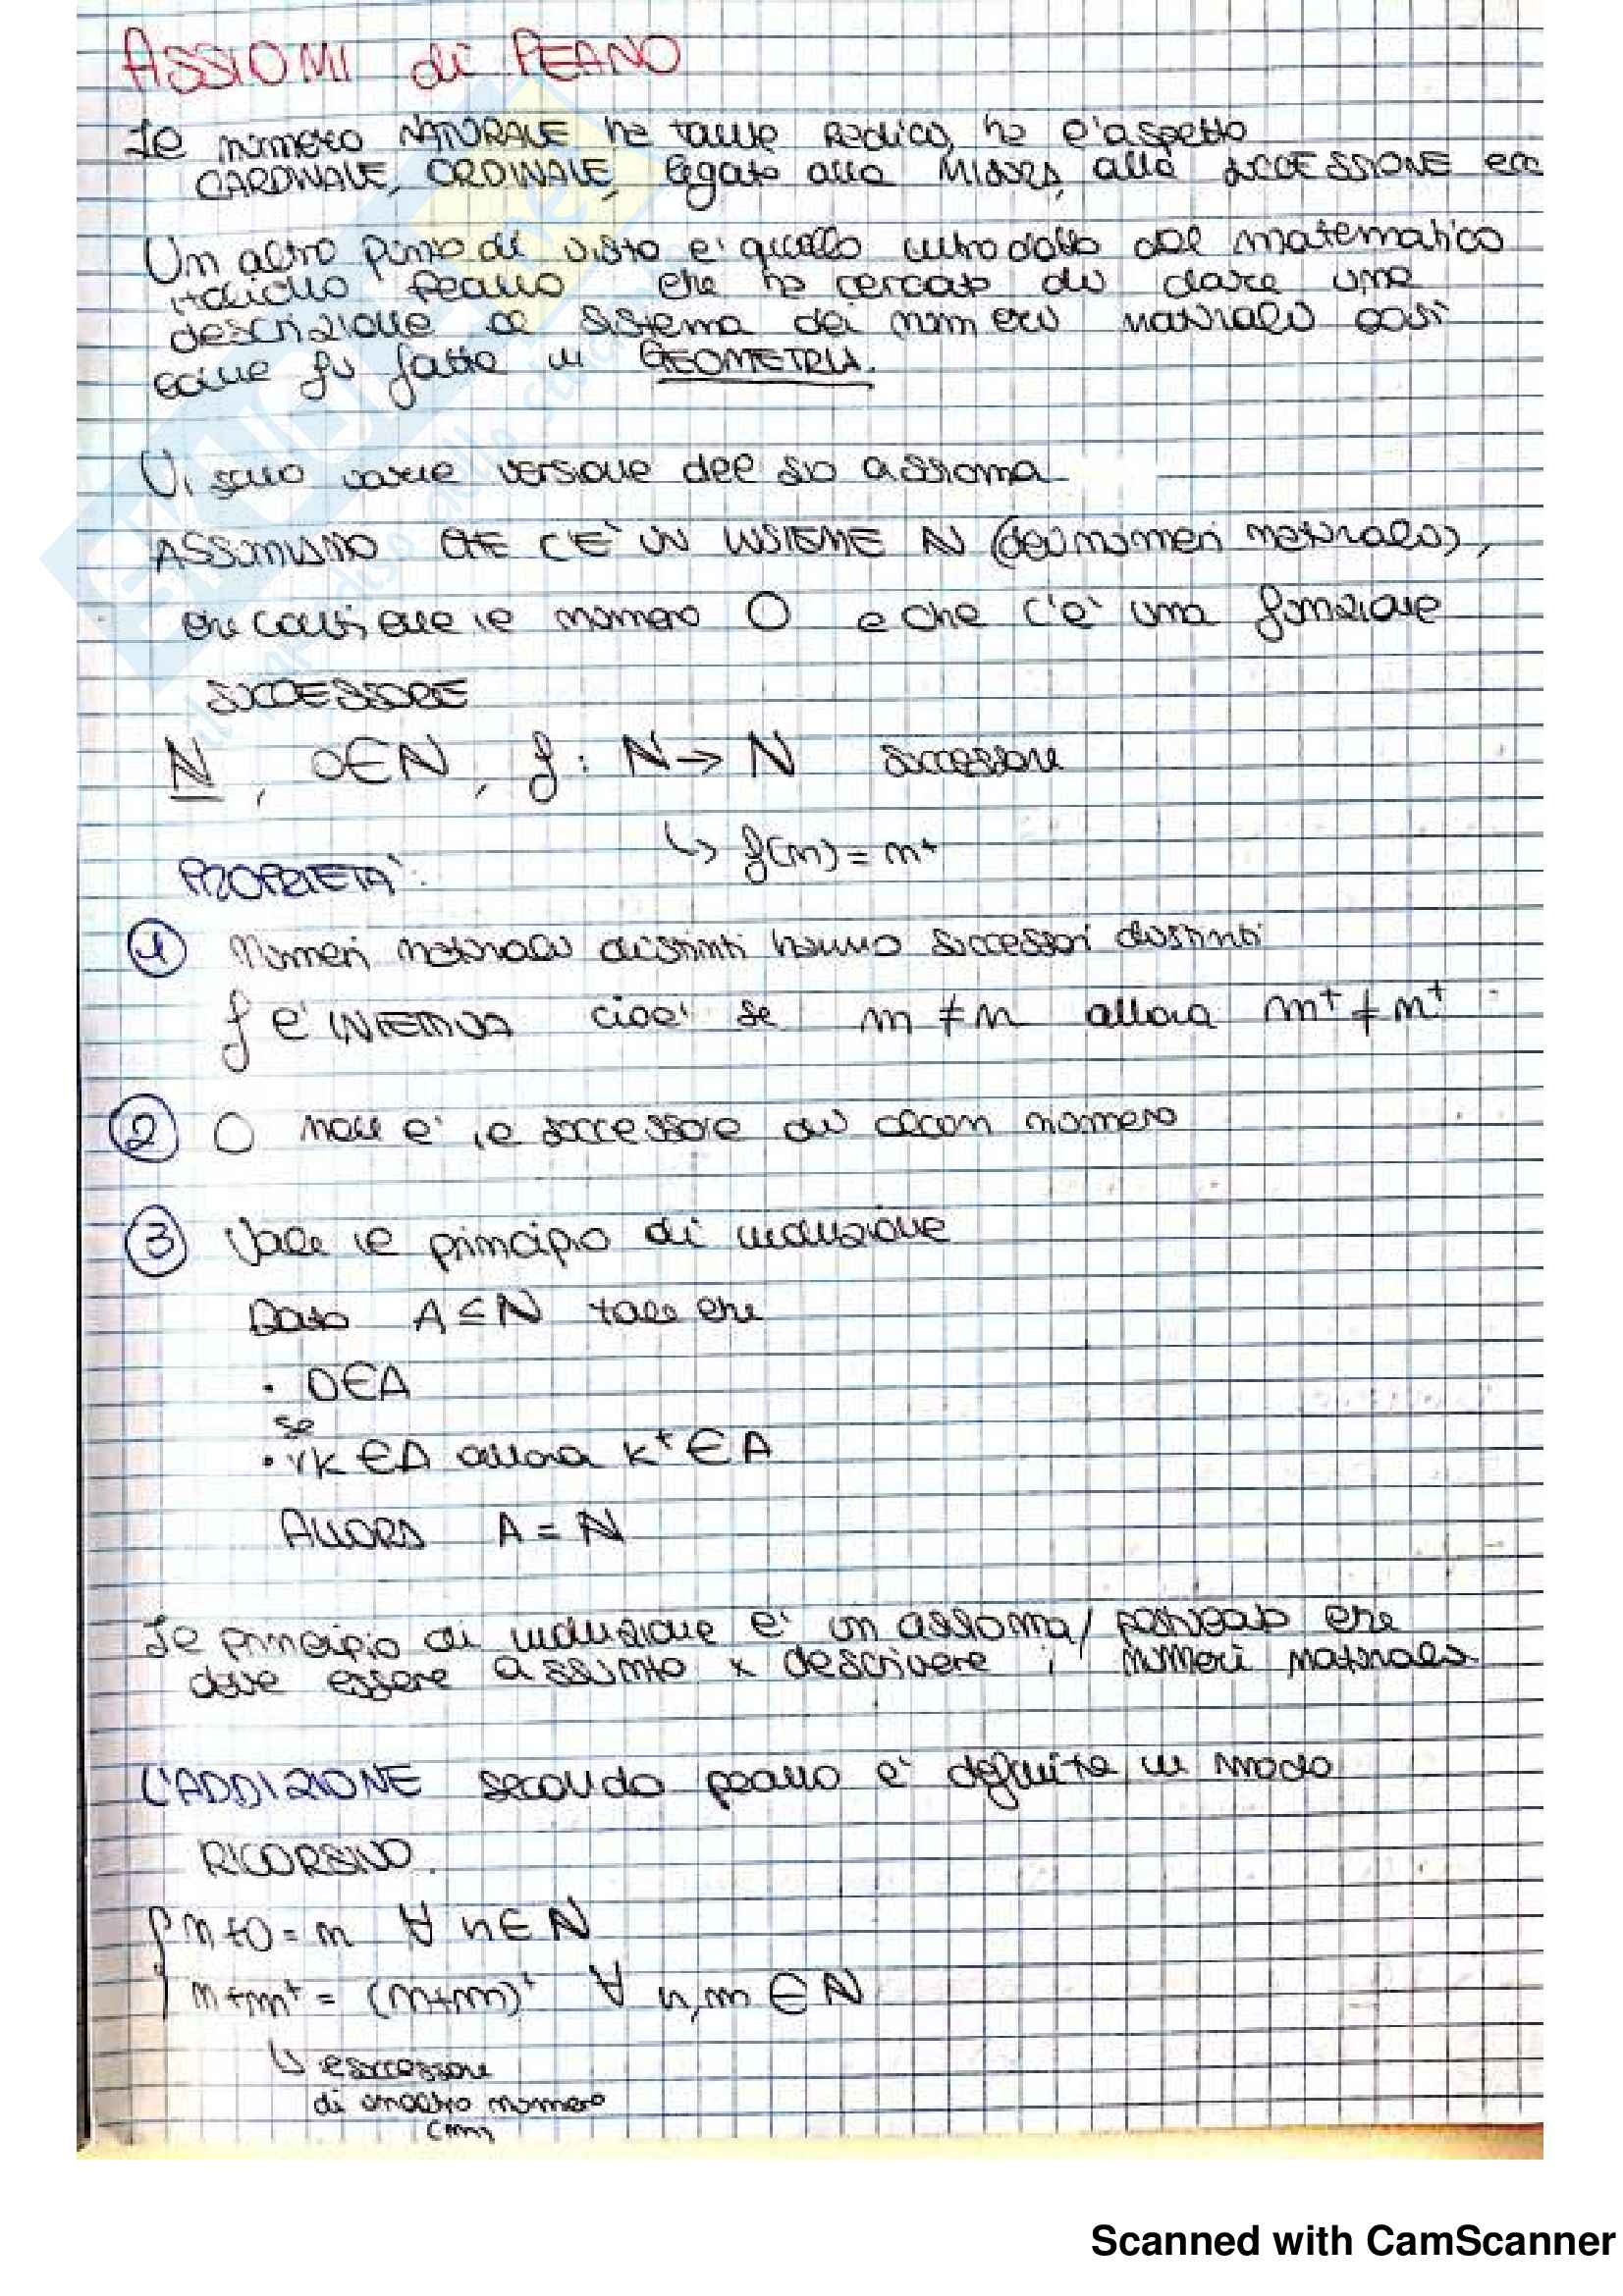 ASSIOMI di PEANO
Il numero NATURALE ha tante radici, ha l'aspetto
CARDINALE, ORDINALE, legato alla MISURA, alla SUCCESSIONE ecc
Un altro punto di vista e' quello introdotto dal matematico
italiano Peano che ha cercato di dare una
descrizione al sistema dei numeri naturali così
come fu fatto in GEOMETRIA.
Vi sono varie versione del suo assioma
ASSUMIAMO CHE C'È UN INSIEME N (dei numeri naturali),
che contiene il numero 0 e che c'e' una funzione
SUCCESSORE
N, 0∈N, f: N→N successore
↳ f(n) = n⁺
PROPRIETA':
1 Numeri naturali distinti hanno successori distinti
f e' INIETTIVA cioe' se m ≠ n allora m⁺ ≠ n⁺
2 0 non e' il successore di alcun numero
3 Vale il principio di induzione
Dato A ⊆ N tale che
• 0∈A
se
• ∀k ∈A allora k⁺ ∈ A
ALLORA A = N
Il principio di induzione e' un assioma/postulato che
deve essere assunto x descrivere i numeri naturali
L'ADDIZIONE secondo peano e' definita in modo
RICORSIVO.
{ n+0 = n ∀ n∈N
n+m⁺ = (n+m)⁺ ∀ n,m ∈ N
↳ e successore
di un altro numero
SKUOLA.net